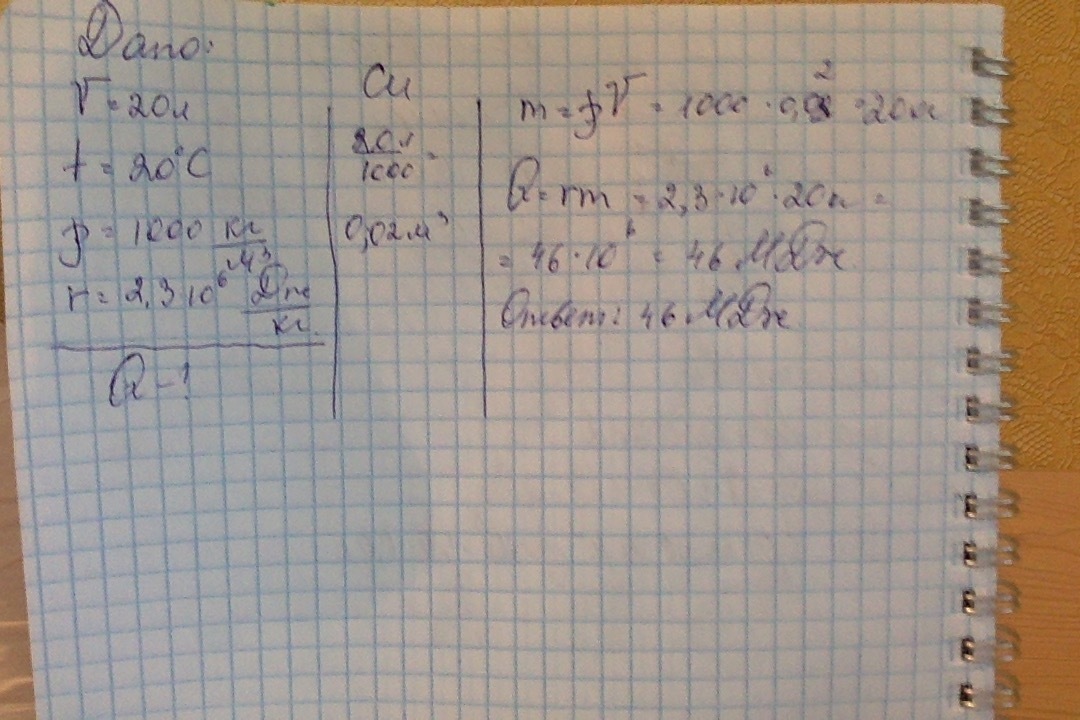 Дано:
V = 20л
t = 20°C
ρ = 1000 кг/м³
r = 2,3·10⁶ Дж/кг
Q - ?
Си
20л/1000 =
0,02м³
m = ρV = 1000 · 0,02 = 20л
Q = rm = 2,3·10⁶ · 20л =
= 46·10⁶ = 46 МДж
Ответ: 46 МДж